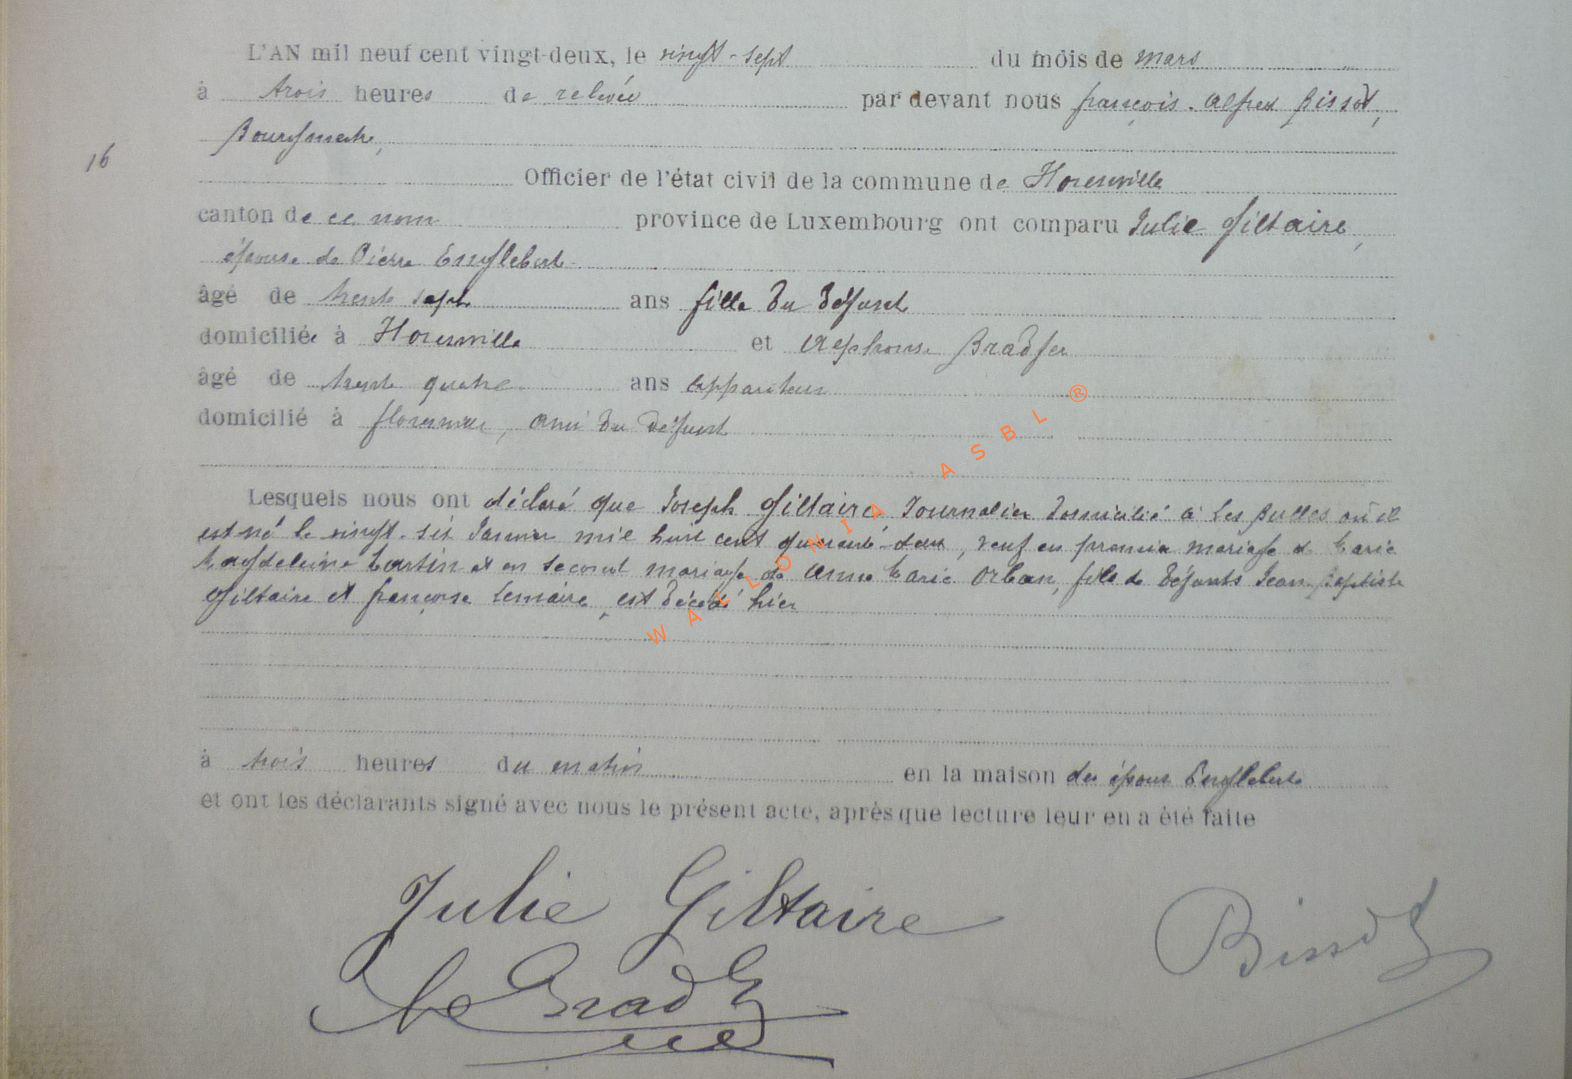 L'AN mil neuf cent vingt-deux, le vingt-sept du mois de mars
à trois heures de relevée par devant nous françois-Alfred Bissot,
Bourgmestre,
16
Officier de l'état civil de la commune de Florenville
canton de ce nom province de Luxembourg ont comparu Julie Giltaire,
épouse de Pierre Englebert
âgé de trente sept ans fille du défunt
domiciliée à Florenville et Alphonse Bradfer
âgé de trente quatre ans appariteur
domicilié à florenville, ami du défunt
Lesquels nous ont déclaré que Joseph Giltaire, Journalier domicilié à Les Bulles où il
est né le vingt-six Janvier mil huit cent quarante-deux, veuf en premier mariage de Marie
Magdeleine Martin et en second mariage de Anne Marie Orban, fils de défunts Jean Baptiste
Giltaire et françoise Lemaire, est décédé hier
à trois heures du matin en la maison des époux Englebert
et ont les déclarants signé avec nous le présent acte, après que lecture leur en a été faite
Julie Giltaire
Bissot
WALLONIA ASBL ®